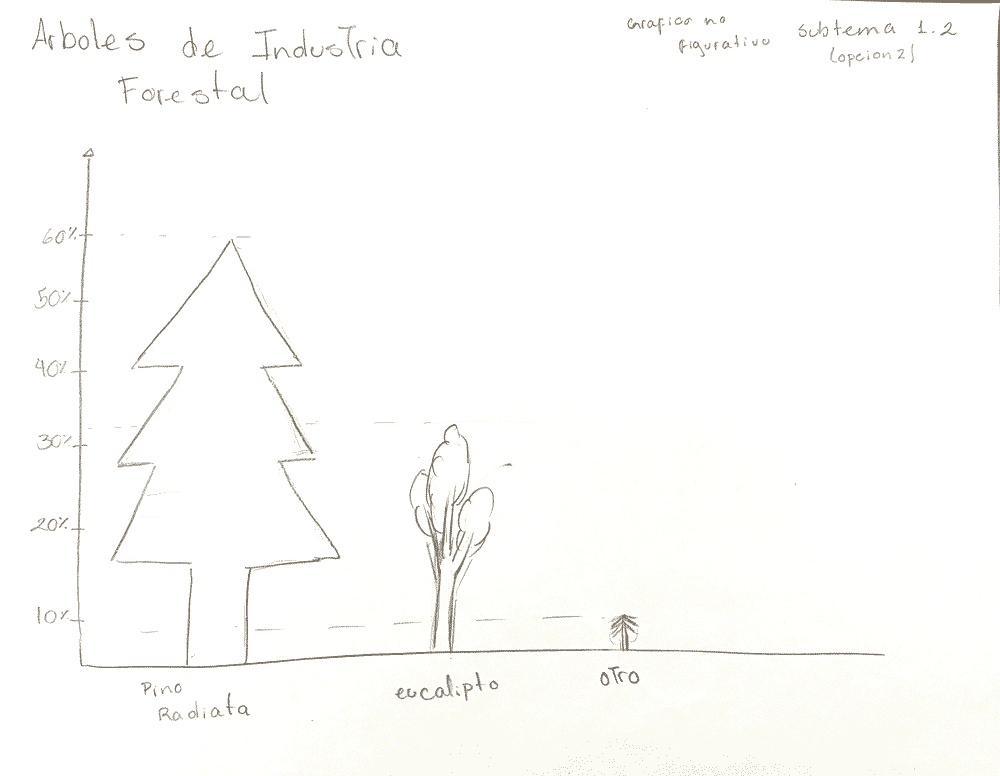 Arboles de Industria
Forestal
Grafico no
figurativo
Subtema 1.2
(opcion 2)
60%
50%
40%
30%
20%
10%
Pino
Radiata
eucalipto
otro